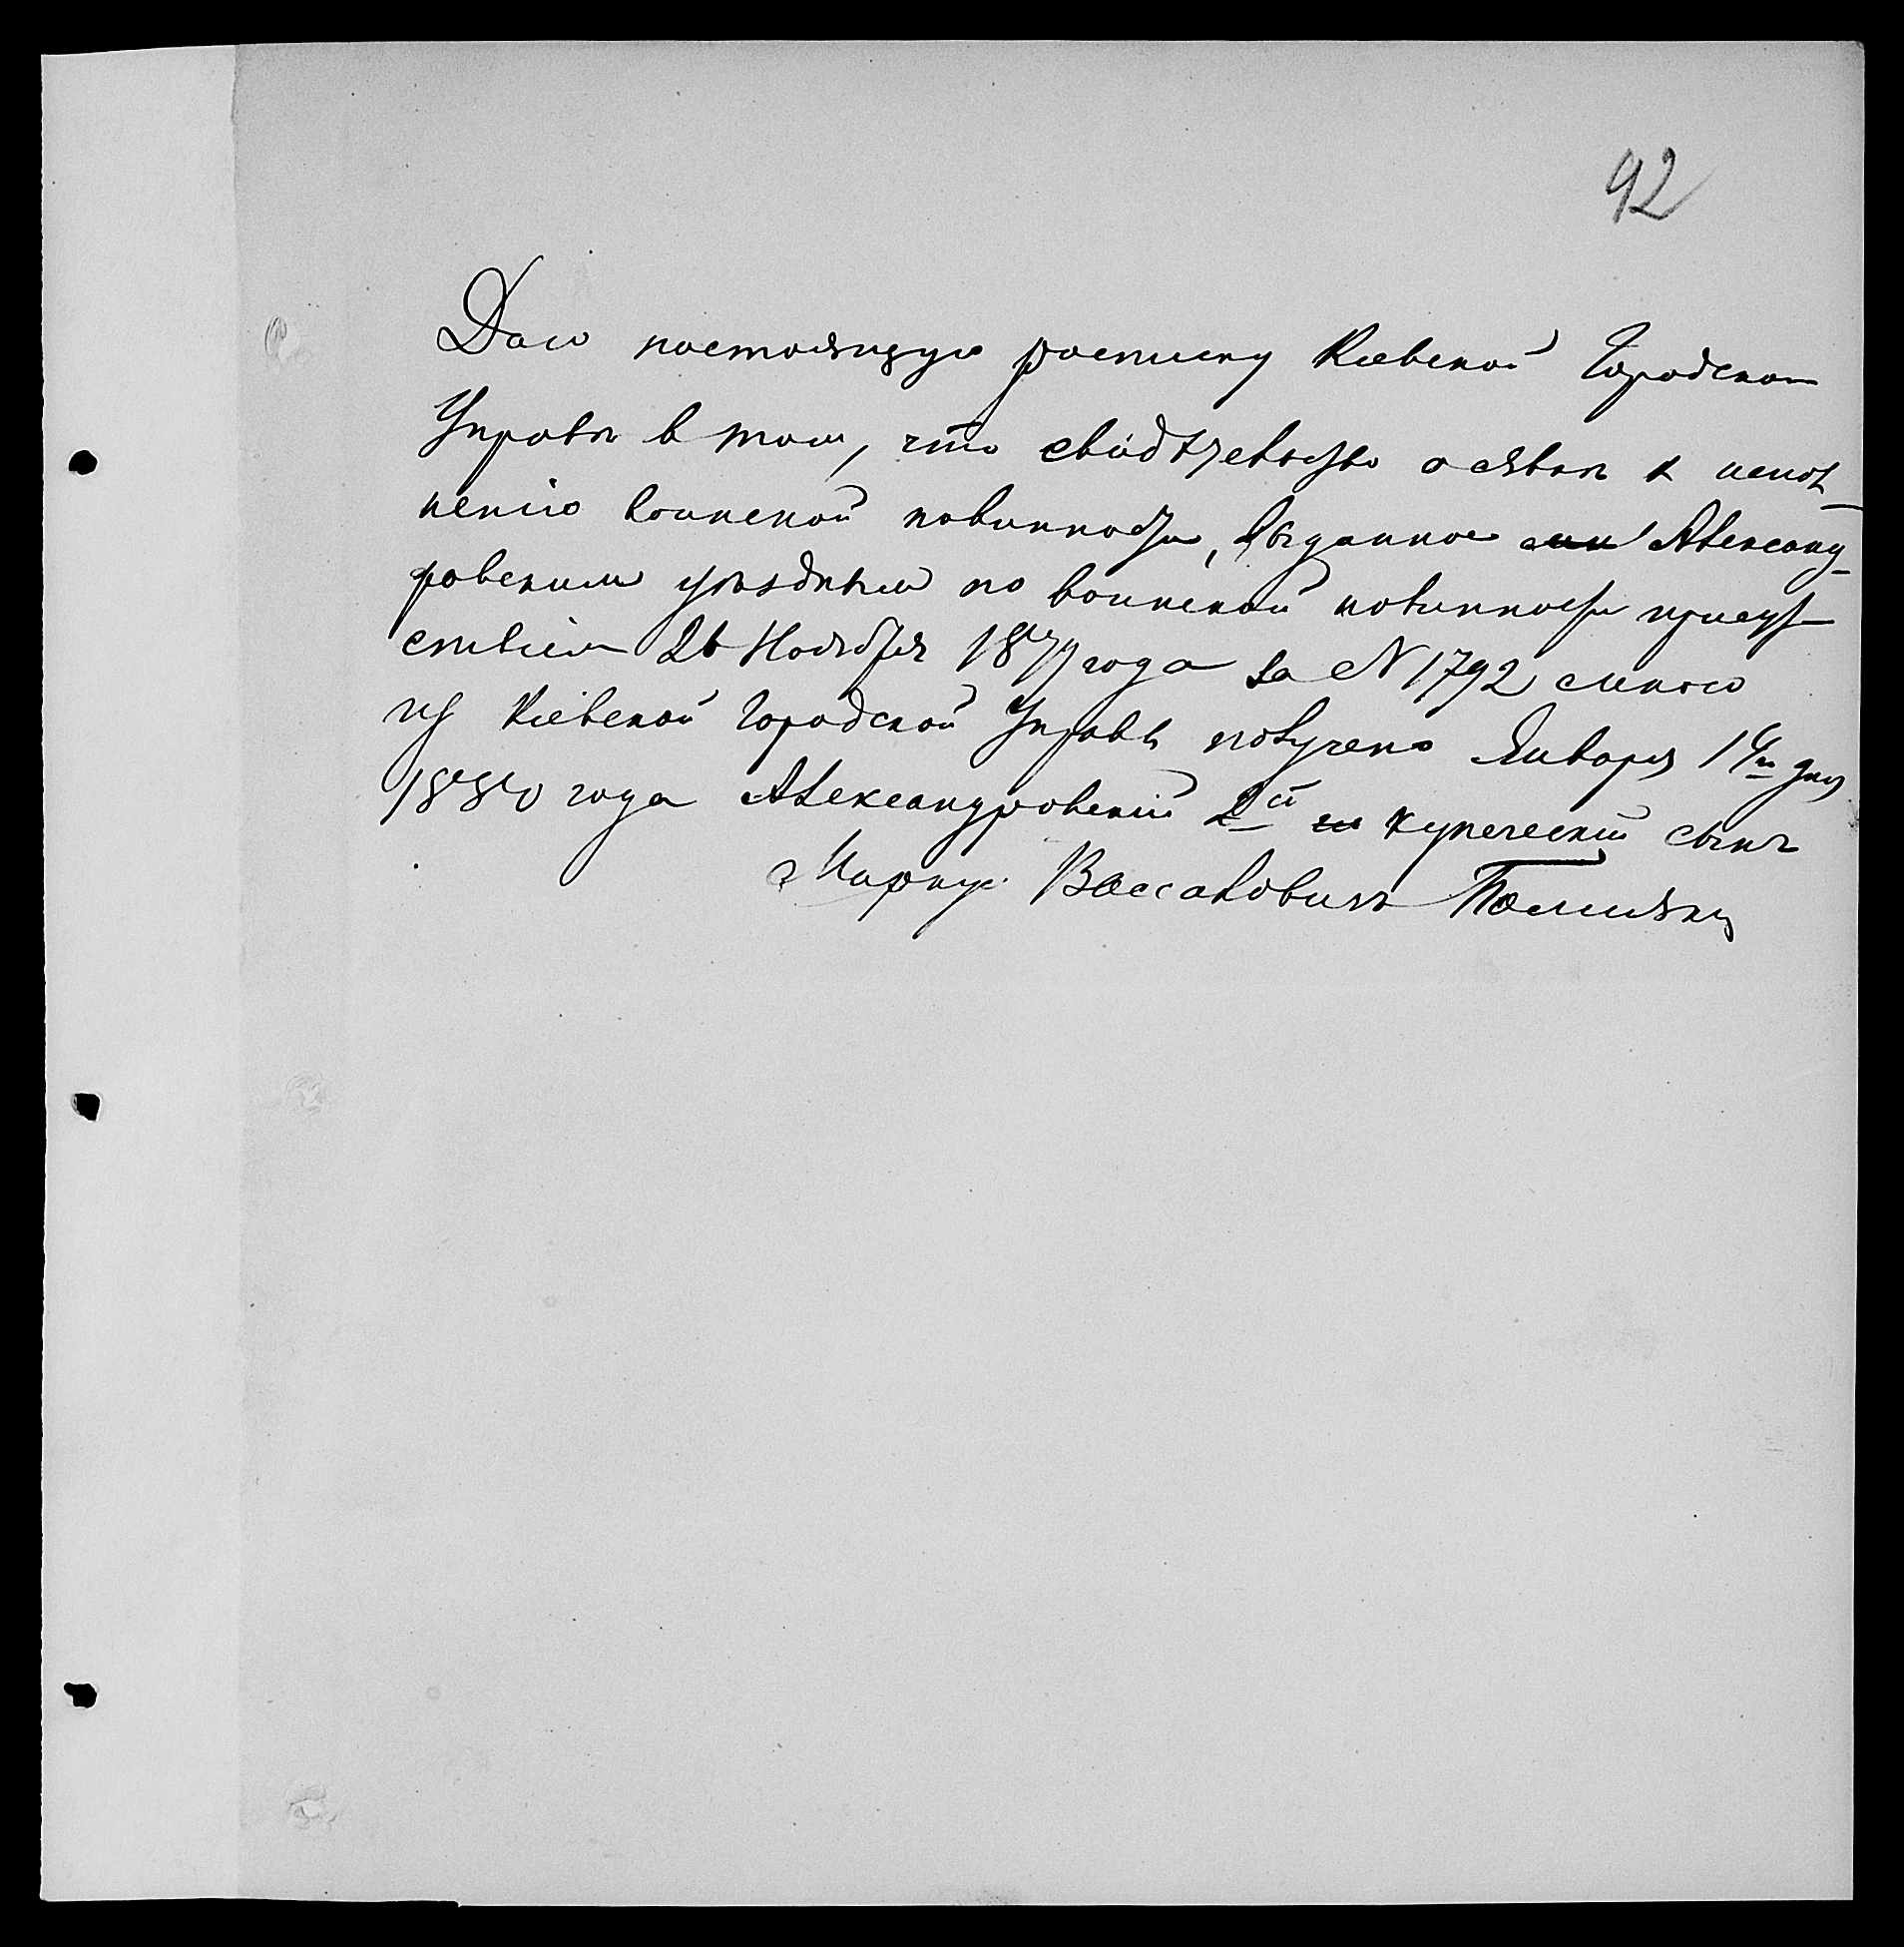 92
Даю настоящую росписку Кіевской Городской
Управѣ в том, что свидѣтельство о явкѣ к испол-
ненію воинской повинности, выданное мнѣ Александ-
ровским уѣздным по воинской повинности присут-
ствіем 26 Ноября 1879 года за № 1792 мною
из Кіевской Городской Управы получено Января дня
1880 года Александровскій 2й купеческій сынъ
Маркус